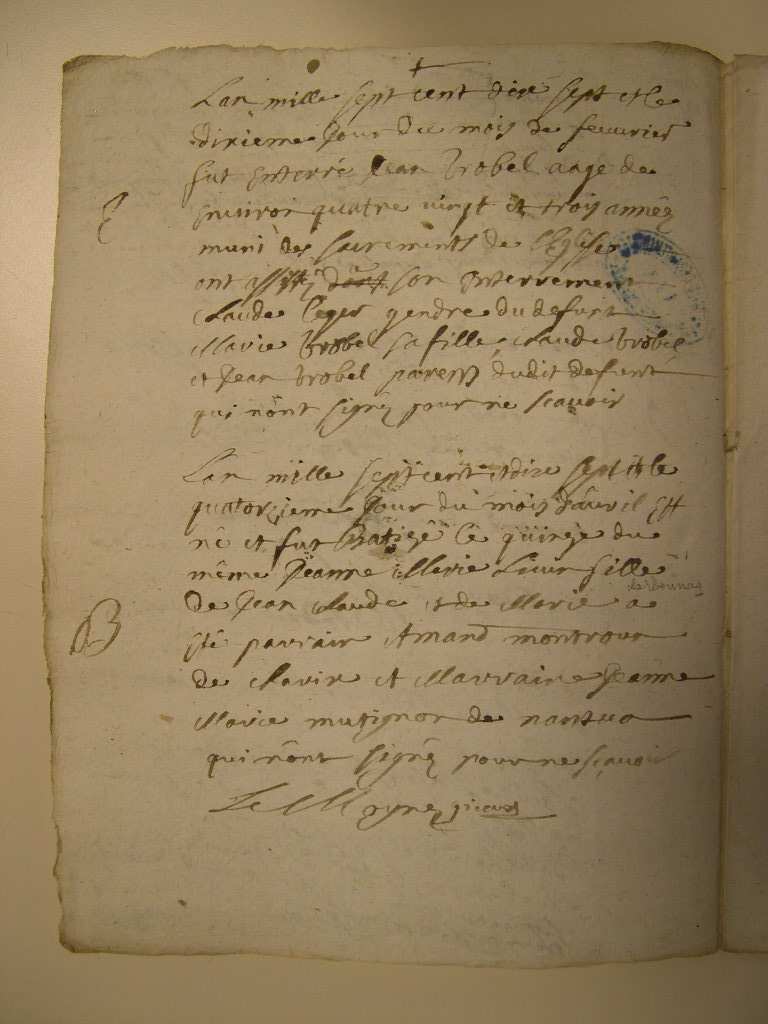 L'an mille sept cent dixe sept et le
dixieme jour du mois de feuurier
fut enterré Jean Brobel aagé de
enuiron quatre vingt et trois années
muni des sacrements de l'Eglise
ont assisté son enterrement
Claude leger gendre du defunt
Marie Brobel sa fille, Claude Brobel
et Jean Brobel parens dudit defunt
qui n'ont signéz pour ne scauoir
L'an mille sept cent et dixe sept et le
quatorzieme jour du mois d'auril est
né et fut Batizé le quinze du
même Jeanne Marie fille
de Jean Claude et de Marie a
été parrain Amand montrour
de et Marraine Jeanne
Marie mutignon de nantua
qui n'ont signéz pour ne sçauoir
B